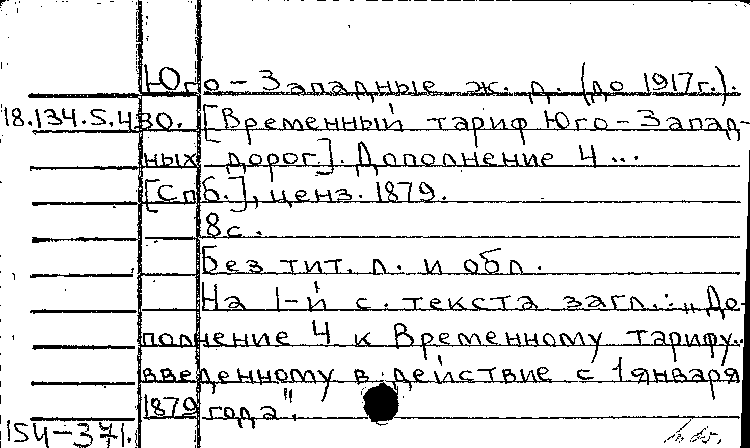 Юго-Западные ж. д. (до 1917г.).
18.134.5.480. [Временный тариф Юго-Запад-
ных дорог]. Дополнение 4...
[Спб.], ценз. 1879.
8с.
Без тит. л. и обл.
На 1-й с. текста загл.: „До-
полнение 4 к Временному тарифу..
введенному в действие с 1 января
1879 года".
154-371.